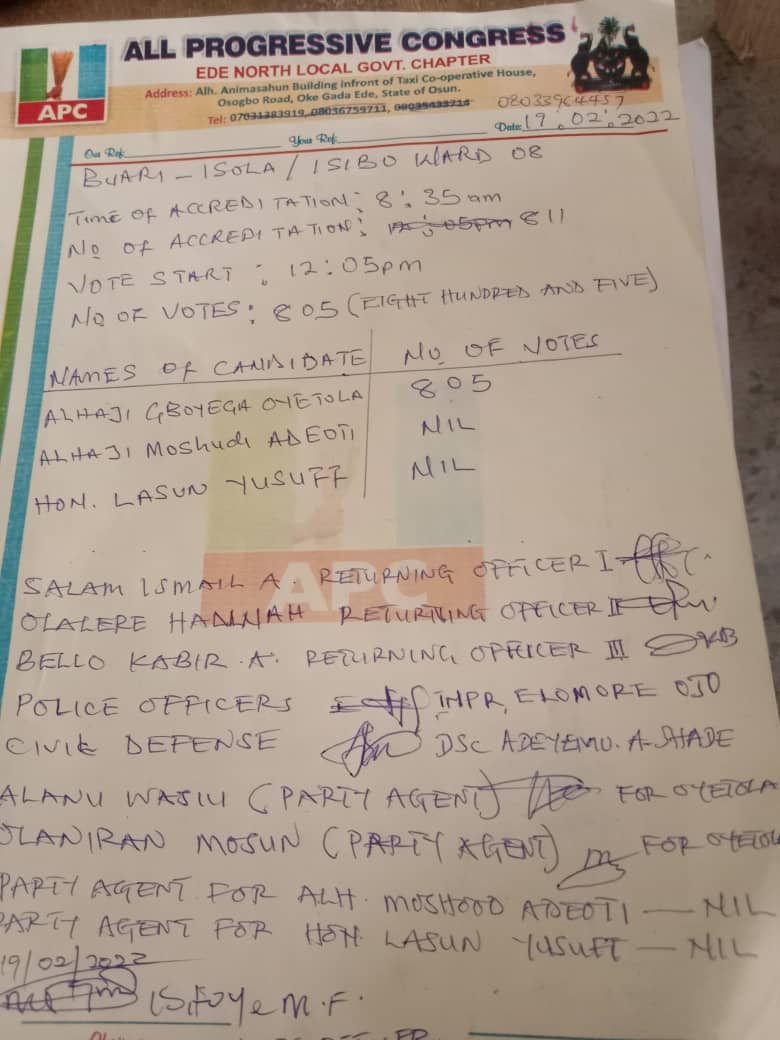 ALL PROGRESSIVE CONGRESS
EDE NORTH LOCAL GOVT. CHAPTER
Address: Alh. Animasahun Building infront of Taxi Co-operative House,
Osogbo Road, Oke Gada Ede, State of Osun.
Tel: 07031383919, 08036759713, 08033964457
APC
Our Ref: Your Ref: Date: 19.02.2022
BUARI - ISOLA / ISIBO WARD 08
TIME OF ACCREDITATION: 8:35am
NO OF ACCREDITATION: 12:05pm 811
VOTE START : 12:05pm
NO OF VOTES: 805 (EIGHT HUNDRED AND FIVE)
NAMES OF CANDIDATE NO OF VOTES
ALHAJI GBOYEGA OYETOLA 805
ALHAJI MOSHUDI ADEOTI NIL
HON. LASUN YUSUFF NIL
APC
SALAM ISMAIL A. RETURNING OFFICER I
OLALERE HANNAH RETURNING OFFICER II
BELLO KABIR .A. RETURNING OFFICER III
POLICE OFFICERS INPR, ELOMORE OJO
CIVIL DEFENSE DSC ADEYEMO. A. SHADE
ALANU WASIU (PARTY AGENT) FOR OYETOLA
OLANIRAN MOSUN (PARTY AGENT) FOR OYETOL
PARTY AGENT FOR ALH. MOSHOOD ADEOTI — NIL
PARTY AGENT FOR HON. LASUN YUSUFF — NIL
19/02/2022
M.F.